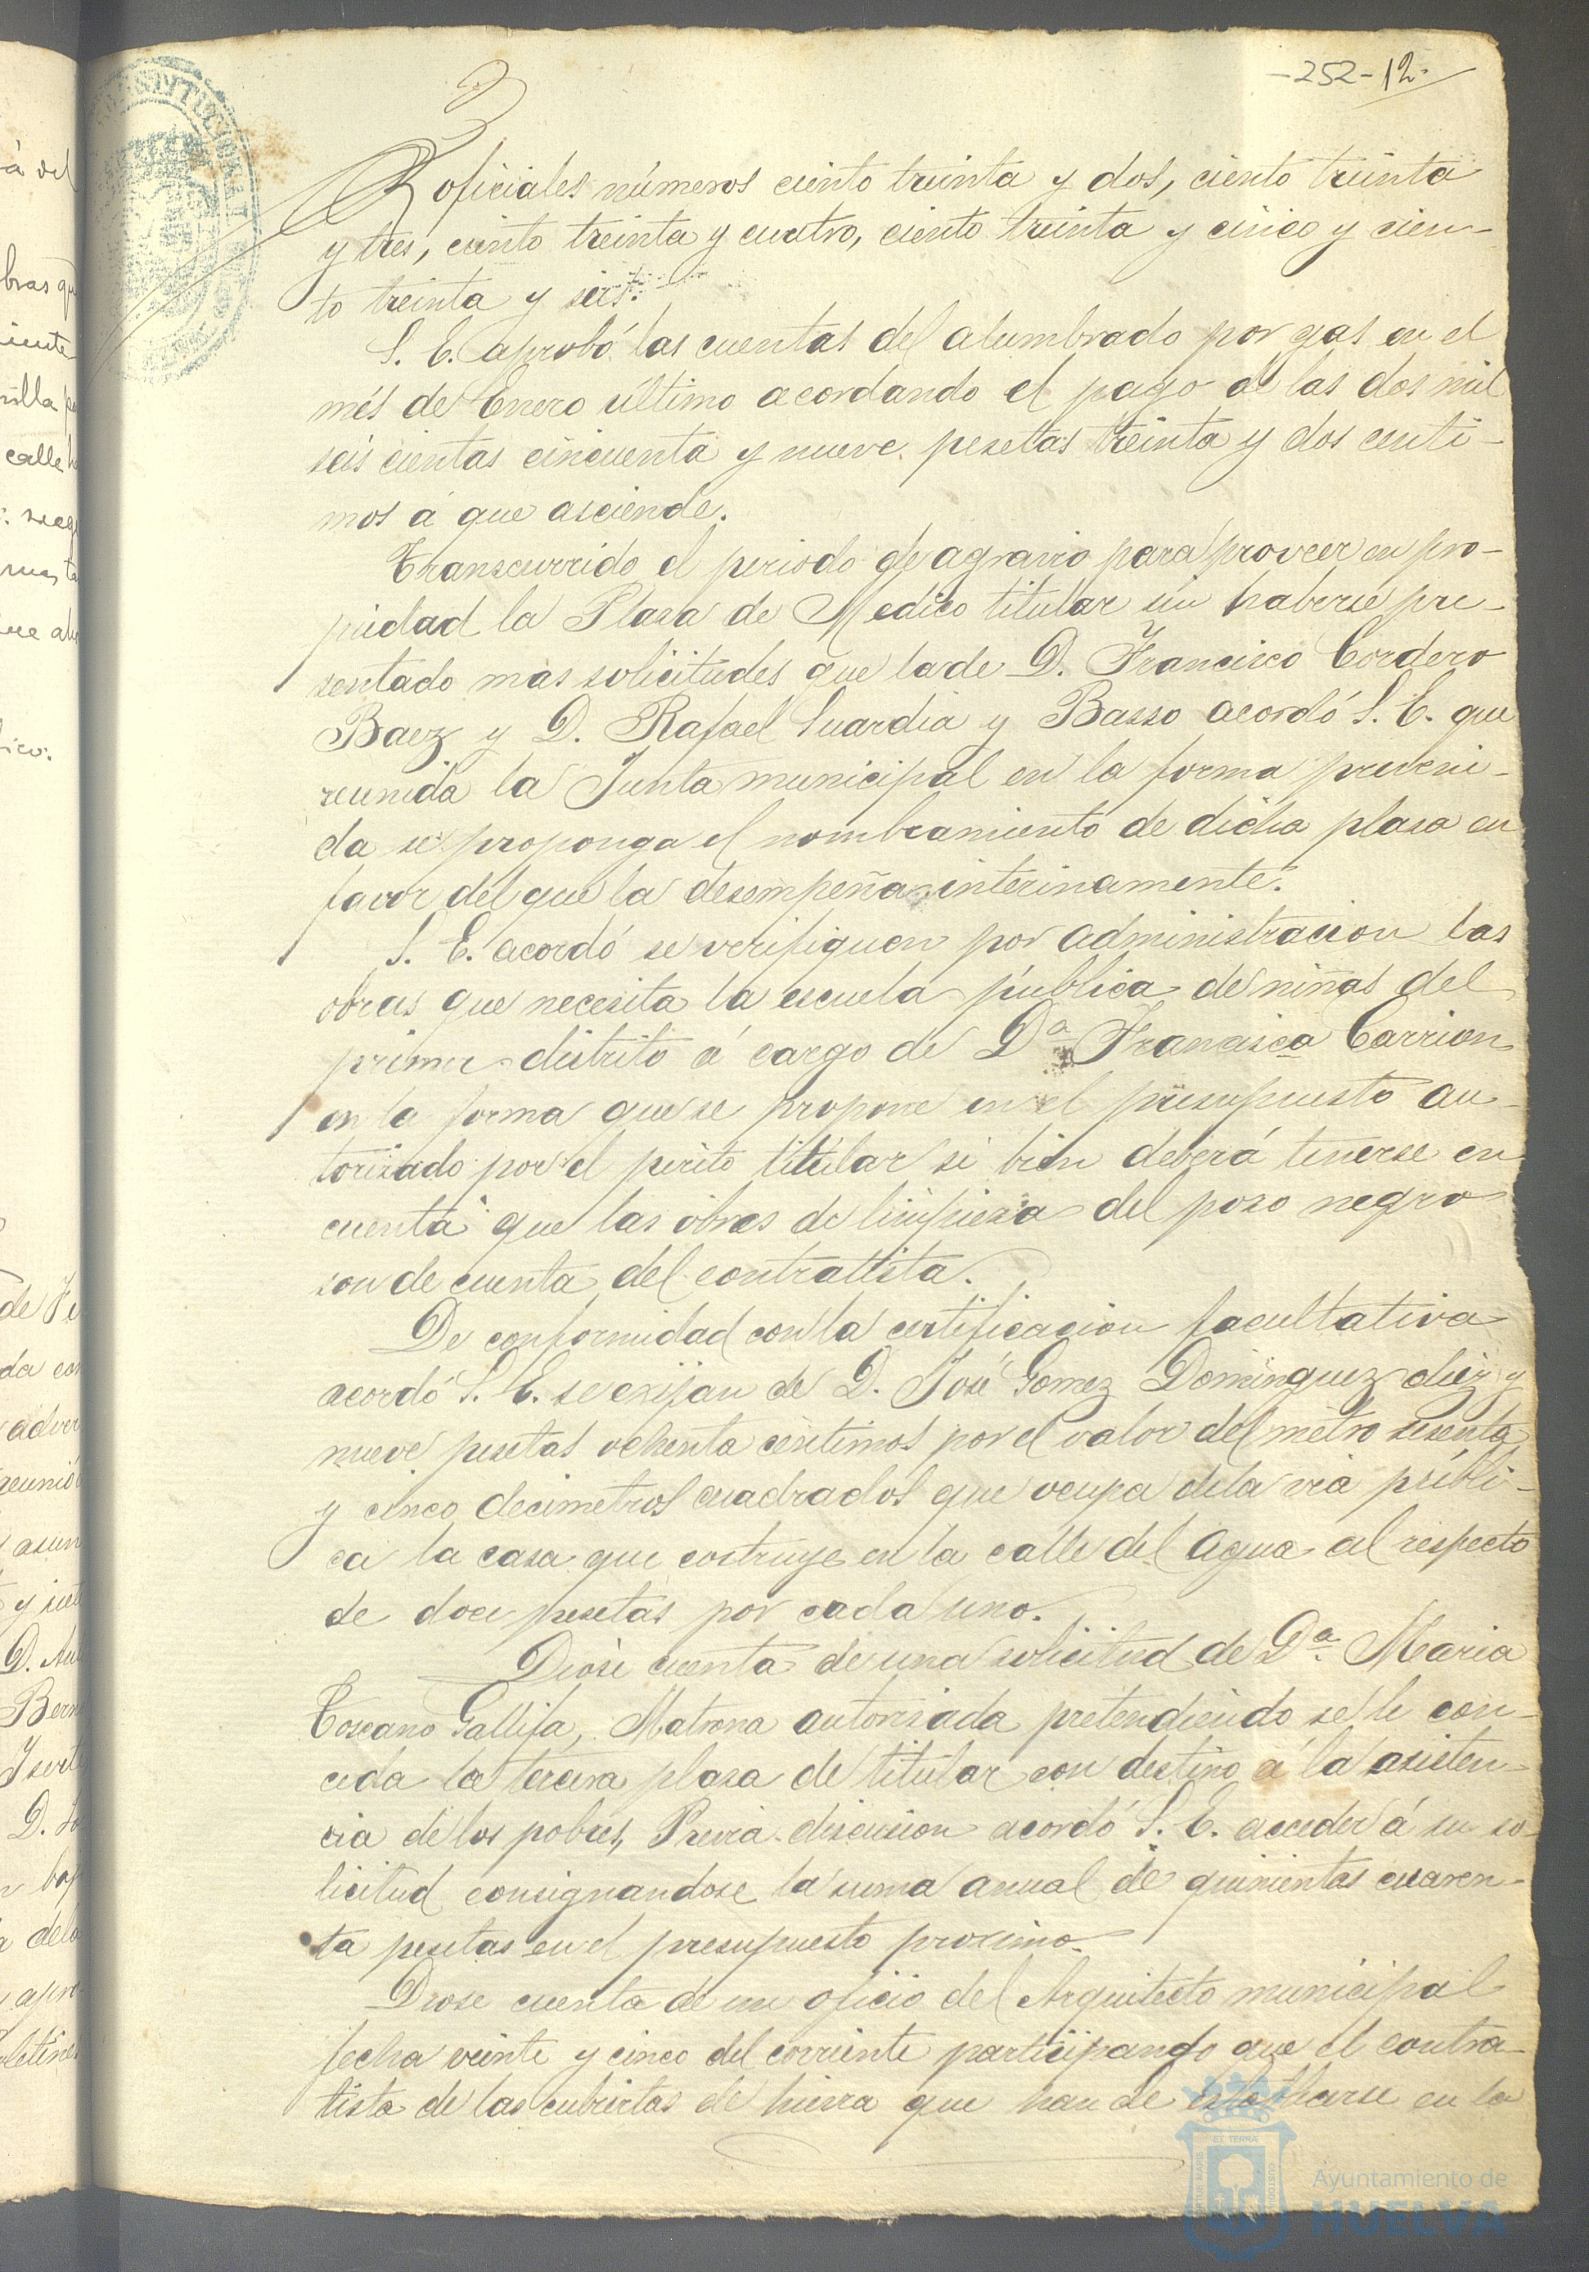 -252- 12-
oficiales números ciento treinta y dos, ciento treinta
y tres, ciento treinta y cuatro, ciento treinta y cinco y cien-
to treinta y seis.
S. E. aprobó las cuentas del alumbrado por gas en el
més de Enero último acordando el pago de las dos mil
seis cientas cincuenta y nueve pesetas treinta y dos centi-
mos á que asciende.
Transcurrido el periodo de agravio para proveer en pro-
piedad la Plaza de Medico titular sin haberse pre-
sentado mas solicitudes que la de D. Francisco Cordero
Baez y D. Rafael Guardia y Basso acordó S. E. que
reunida la Junta municipal en la forma preveni-
da se proponga el nombramiento de dicha plaza en
favor del que la desempeña interinamente.
S. E. acordó se verifiquen por administracion las
obras que necesita la escuela pública de niñas del
primer distrito á cargo de Dª Francisca Carrion
en la forma que se propone en el presupuesto au-
torizado por el perito titular si bien deberá tenerse en
cuenta que las obras de limpieza del pozo negro
son de cuenta del contratista.
De conformidad con la certificacion facultativa
acordó S. E. se exijan de D. José Gomez Dominguez diez y
nueve pesetas ochenta centimos por el valor del metro sesenta
y cinco decimetros cuadrados que ocupa de la via públi-
ca la casa que costruye en la calle del Agua al respecto
de doce pesetas por cada uno.
Diose cuenta de una solicitud de Dª Maria
Toscano Gallifa, Matrona autorizada pretendiendo se le con-
ceda la tercera plaza de titular con destino á la asisten-
cia de los pobres, Previa discusion acordó S. E. acceder á su so-
licitud consignandose la suma anual de quinientas cuaren-
ta pesetas en el presupuesto procsimo.
Diose cuenta de un oficio del Arquitecto municipal
fecha veinte y cinco del corriente participando que el contra-
tista de las cubiertas de hierro que han de en la
Ayuntamiento de
HUELVA